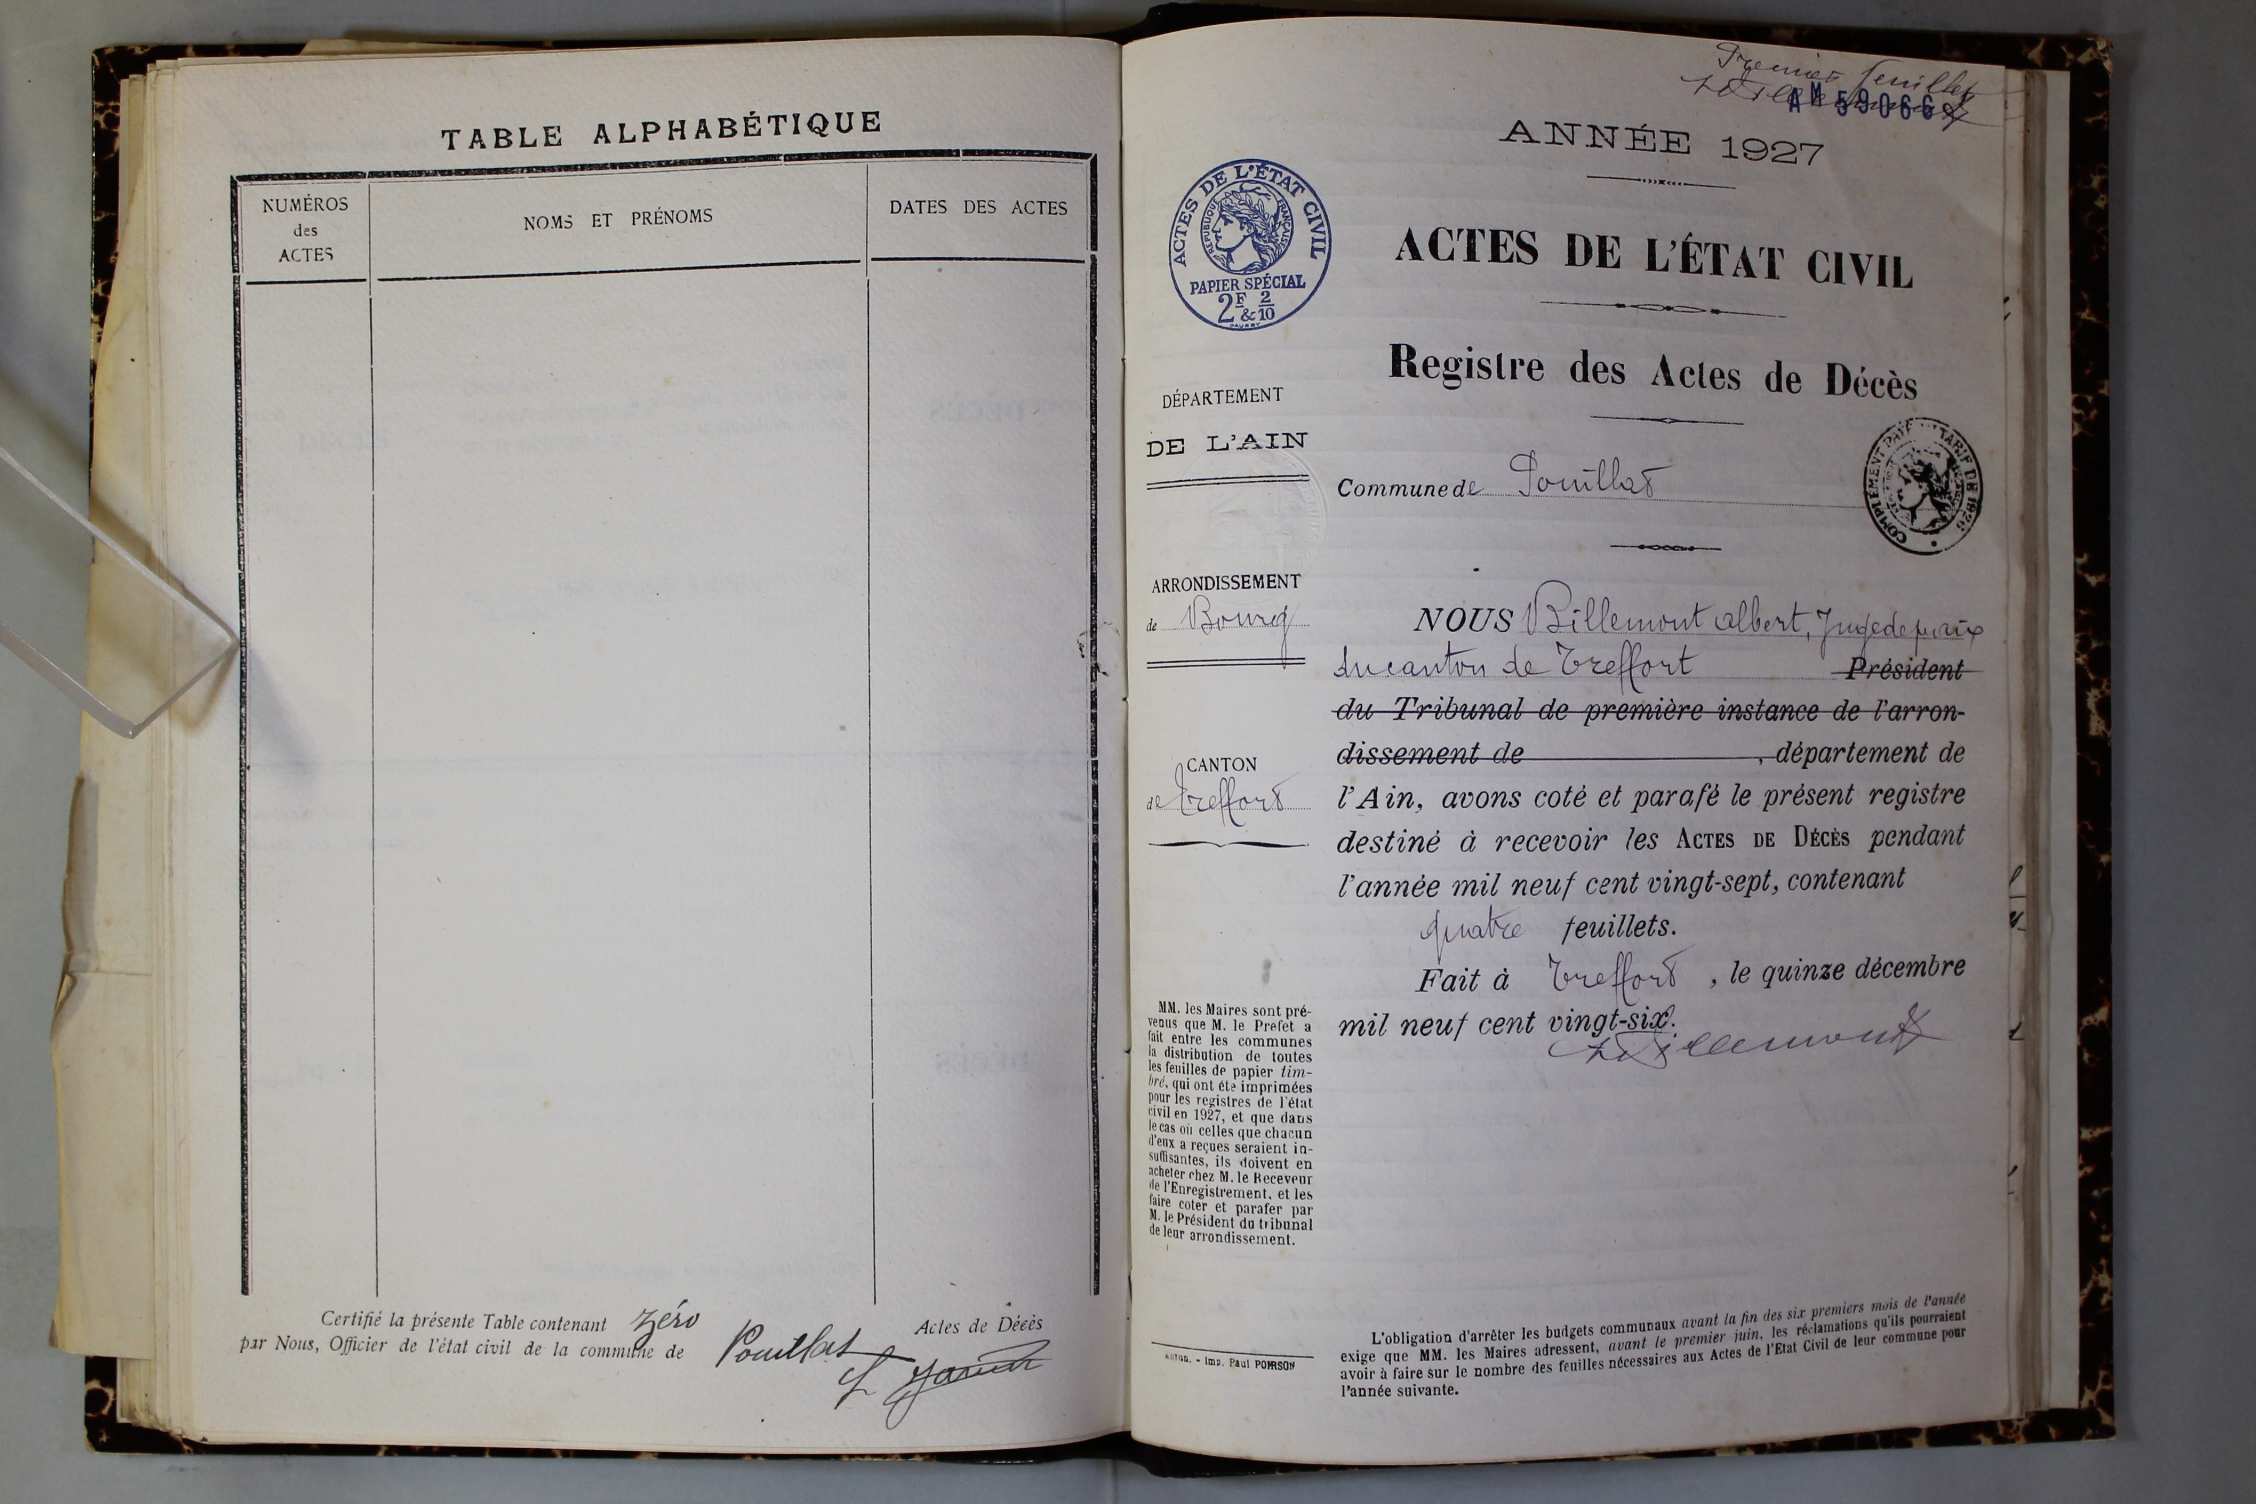 TABLE ALPHABÉTIQUE
NUMÉROS
des
ACTES
NOMS ET PRÉNOMS
DATES DES ACTES
Certifié la présente Table contenant zéro Actes de Décès
par Nous, Officier de l'état civil de la commune de Pouillat
Premier feuillet
ABillemont
AM 59066
ANNÉE 1927
ACTES DE L'ÉTAT CIVIL
RÉPUBLIQUE FRANÇAISE
PAPIER SPÉCIAL
2F & 2/10
ACTES DE L'ÉTAT CIVIL
Registre des Actes de Décès
DÉPARTEMENT
DE L'AIN
Commune de Pouillat
COMPLÉMENT PAYÉ TARIF DE 1926
ARRONDISSEMENT
de Bourg
CANTON
de Treffort
NOUS Billemont albert, Juge de paix
du canton de Treffort Président
du Tribunal de première instance de l'arron-
dissement de , département de
l'Ain, avons coté et parafé le présent registre
destiné à recevoir les ACTES DE DÉCÈS pendant
l'année mil neuf cent vingt-sept, contenant
quatre feuillets.
Fait à Treffort, le quinze décembre
mil neuf cent vingt-six.
ABillemont
MM. les Maires sont pré-
venus que M. le Prefet a
fait entre les communes
la distribution de toutes
les feuilles de papier tim-
bré, qui ont été imprimées
pour les registres de l'état
civil en 1927, et que dans
le cas où celles que chacun
d'eux a reçues seraient in-
suffisantes, ils doivent en
acheter chez M. le Receveur
de l'Enregistrement, et les
faire coter et parafer par
M. le Président du tribunal
de leur arrondissement.
- Imp. Paul POIRSON
L'obligation d'arrêter les budgets communaux avant la fin des six premiers mois de l'année
exige que MM. les Maires adressent, avant le premier juin, les réclamations qu'ils pourraient
avoir à faire sur le nombre des feuilles nécessaires aux Actes de l'Etat Civil de leur commune pour
l'année suivante.